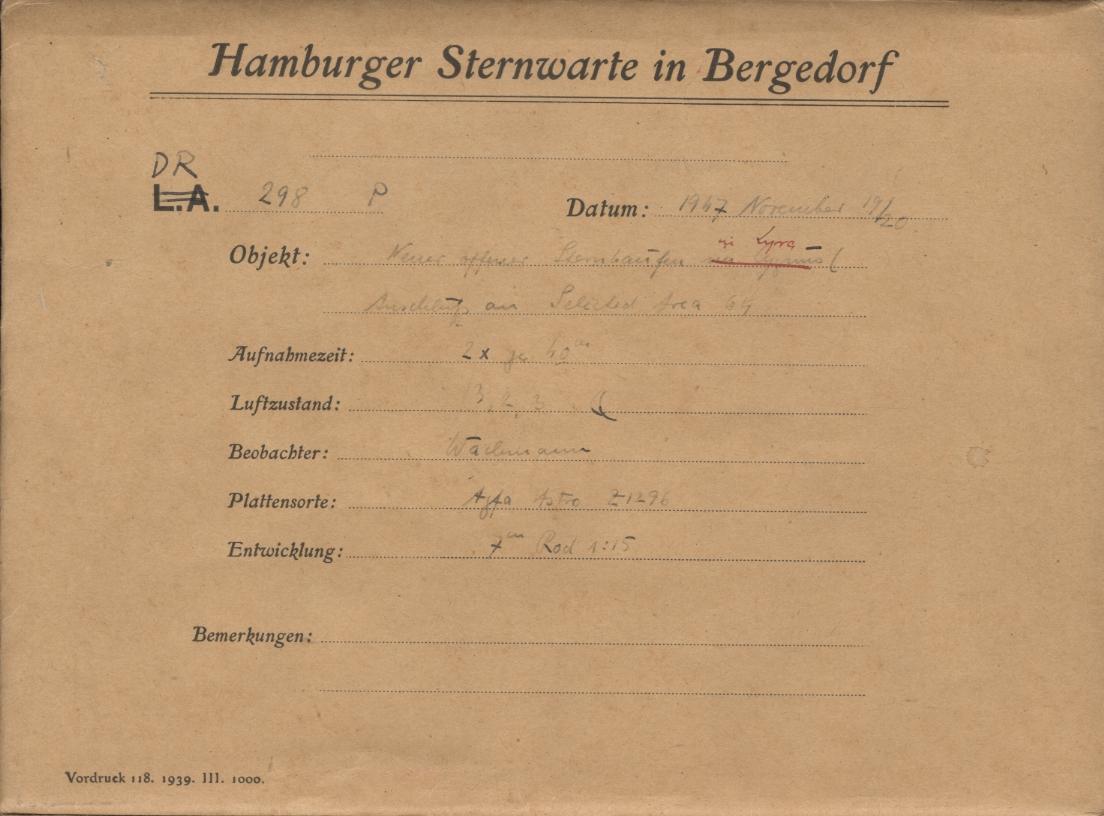 Hamburger Sternwarte in Bergedorf
DR
L.A. 298 P Datum: 1947 November 19/20
in Lyra
Objekt: Neuer offener Sternhaufen in Cygnus (
Anschluß an Selected Area 64
Aufnahmezeit: 2 x je 40m
Luftzustand: 3, 2, 3
Beobachter: Wachmann
Plattensorte: Agfa Astro Z1296
Entwicklung: 7m Rod 1:15
Bemerkungen:
Vordruck 118. 1939. III. 1000.